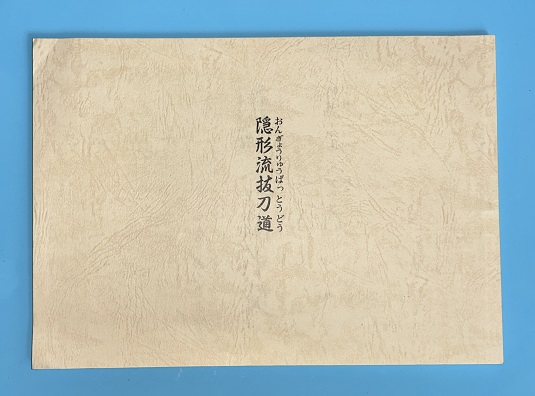 隠形流抜刀道
おんぎょうりゅうばっとうどう